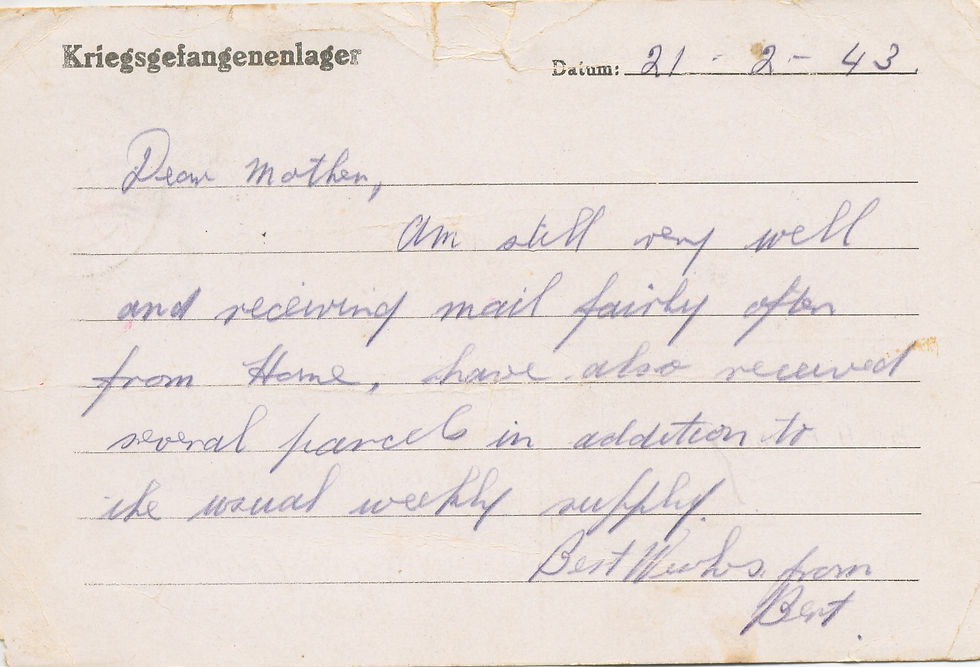 Kriegsgefangenenlager
Datum: 21 - 2 - 43.
Dear Mother,
Am still very well
and receiving mail fairly often
from Home, have also received
several parcels in addition to
the usual weekly supply.
Best Wishes from
Bert.